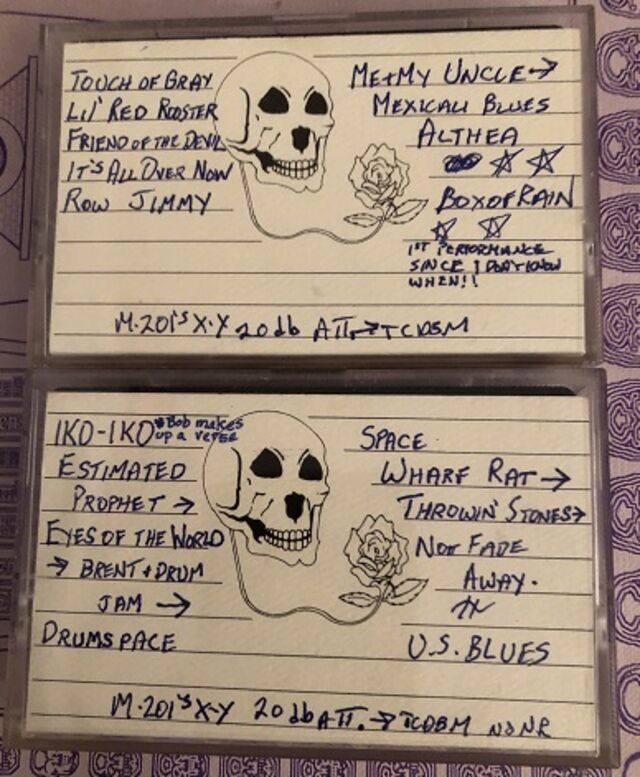 TOUCH OF GRAY
LIL' RED ROOSTER
FRIEND OF THE DEVIL
IT'S ALL OVER NOW
ROW JIMMY
ME+MY UNCLE →
MEXICALI BLUES
ALTHEA
☆ ☆
BOX OF RAIN
☆ ☆
1ST PERFORMANCE
SINCE I DON'T KNOW
WHEN!!
M·201'S X·Y 20db ATT. → TCD5M
IKO-IKO *Bob makes
up a verse
ESTIMATED
PROPHET →
EYES OF THE WORLD
→ BRENT + DRUM
JAM →
DRUMSPACE
SPACE
WHARF RAT →
THROWIN' STONES →
NOT FADE
AWAY.
U.S. BLUES
M·201's X-Y 20db ATT. → TCD5M NO NR